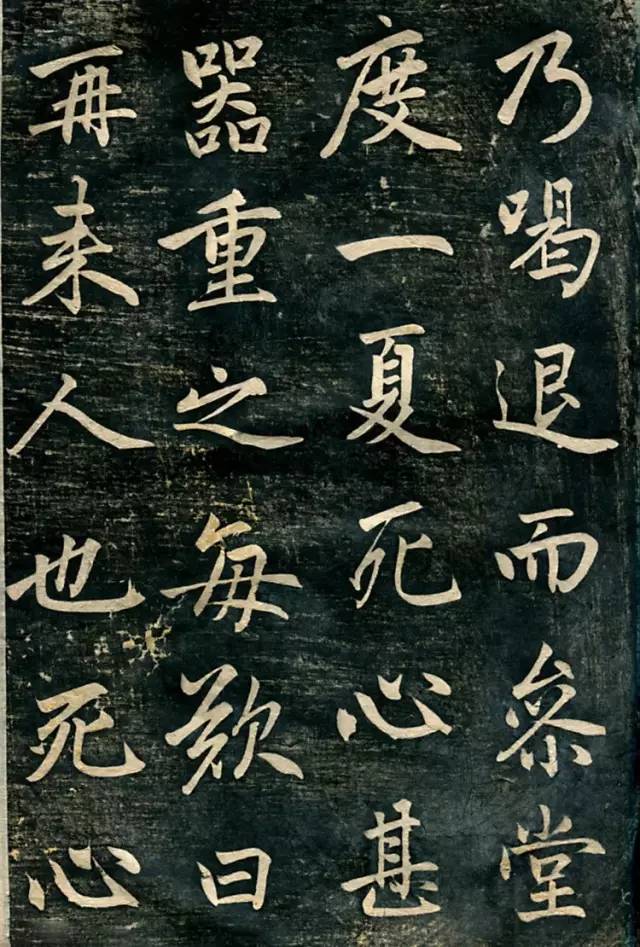 乃喝退而叅堂
度一夏死心甚
器重之每歎曰
再来人也死心